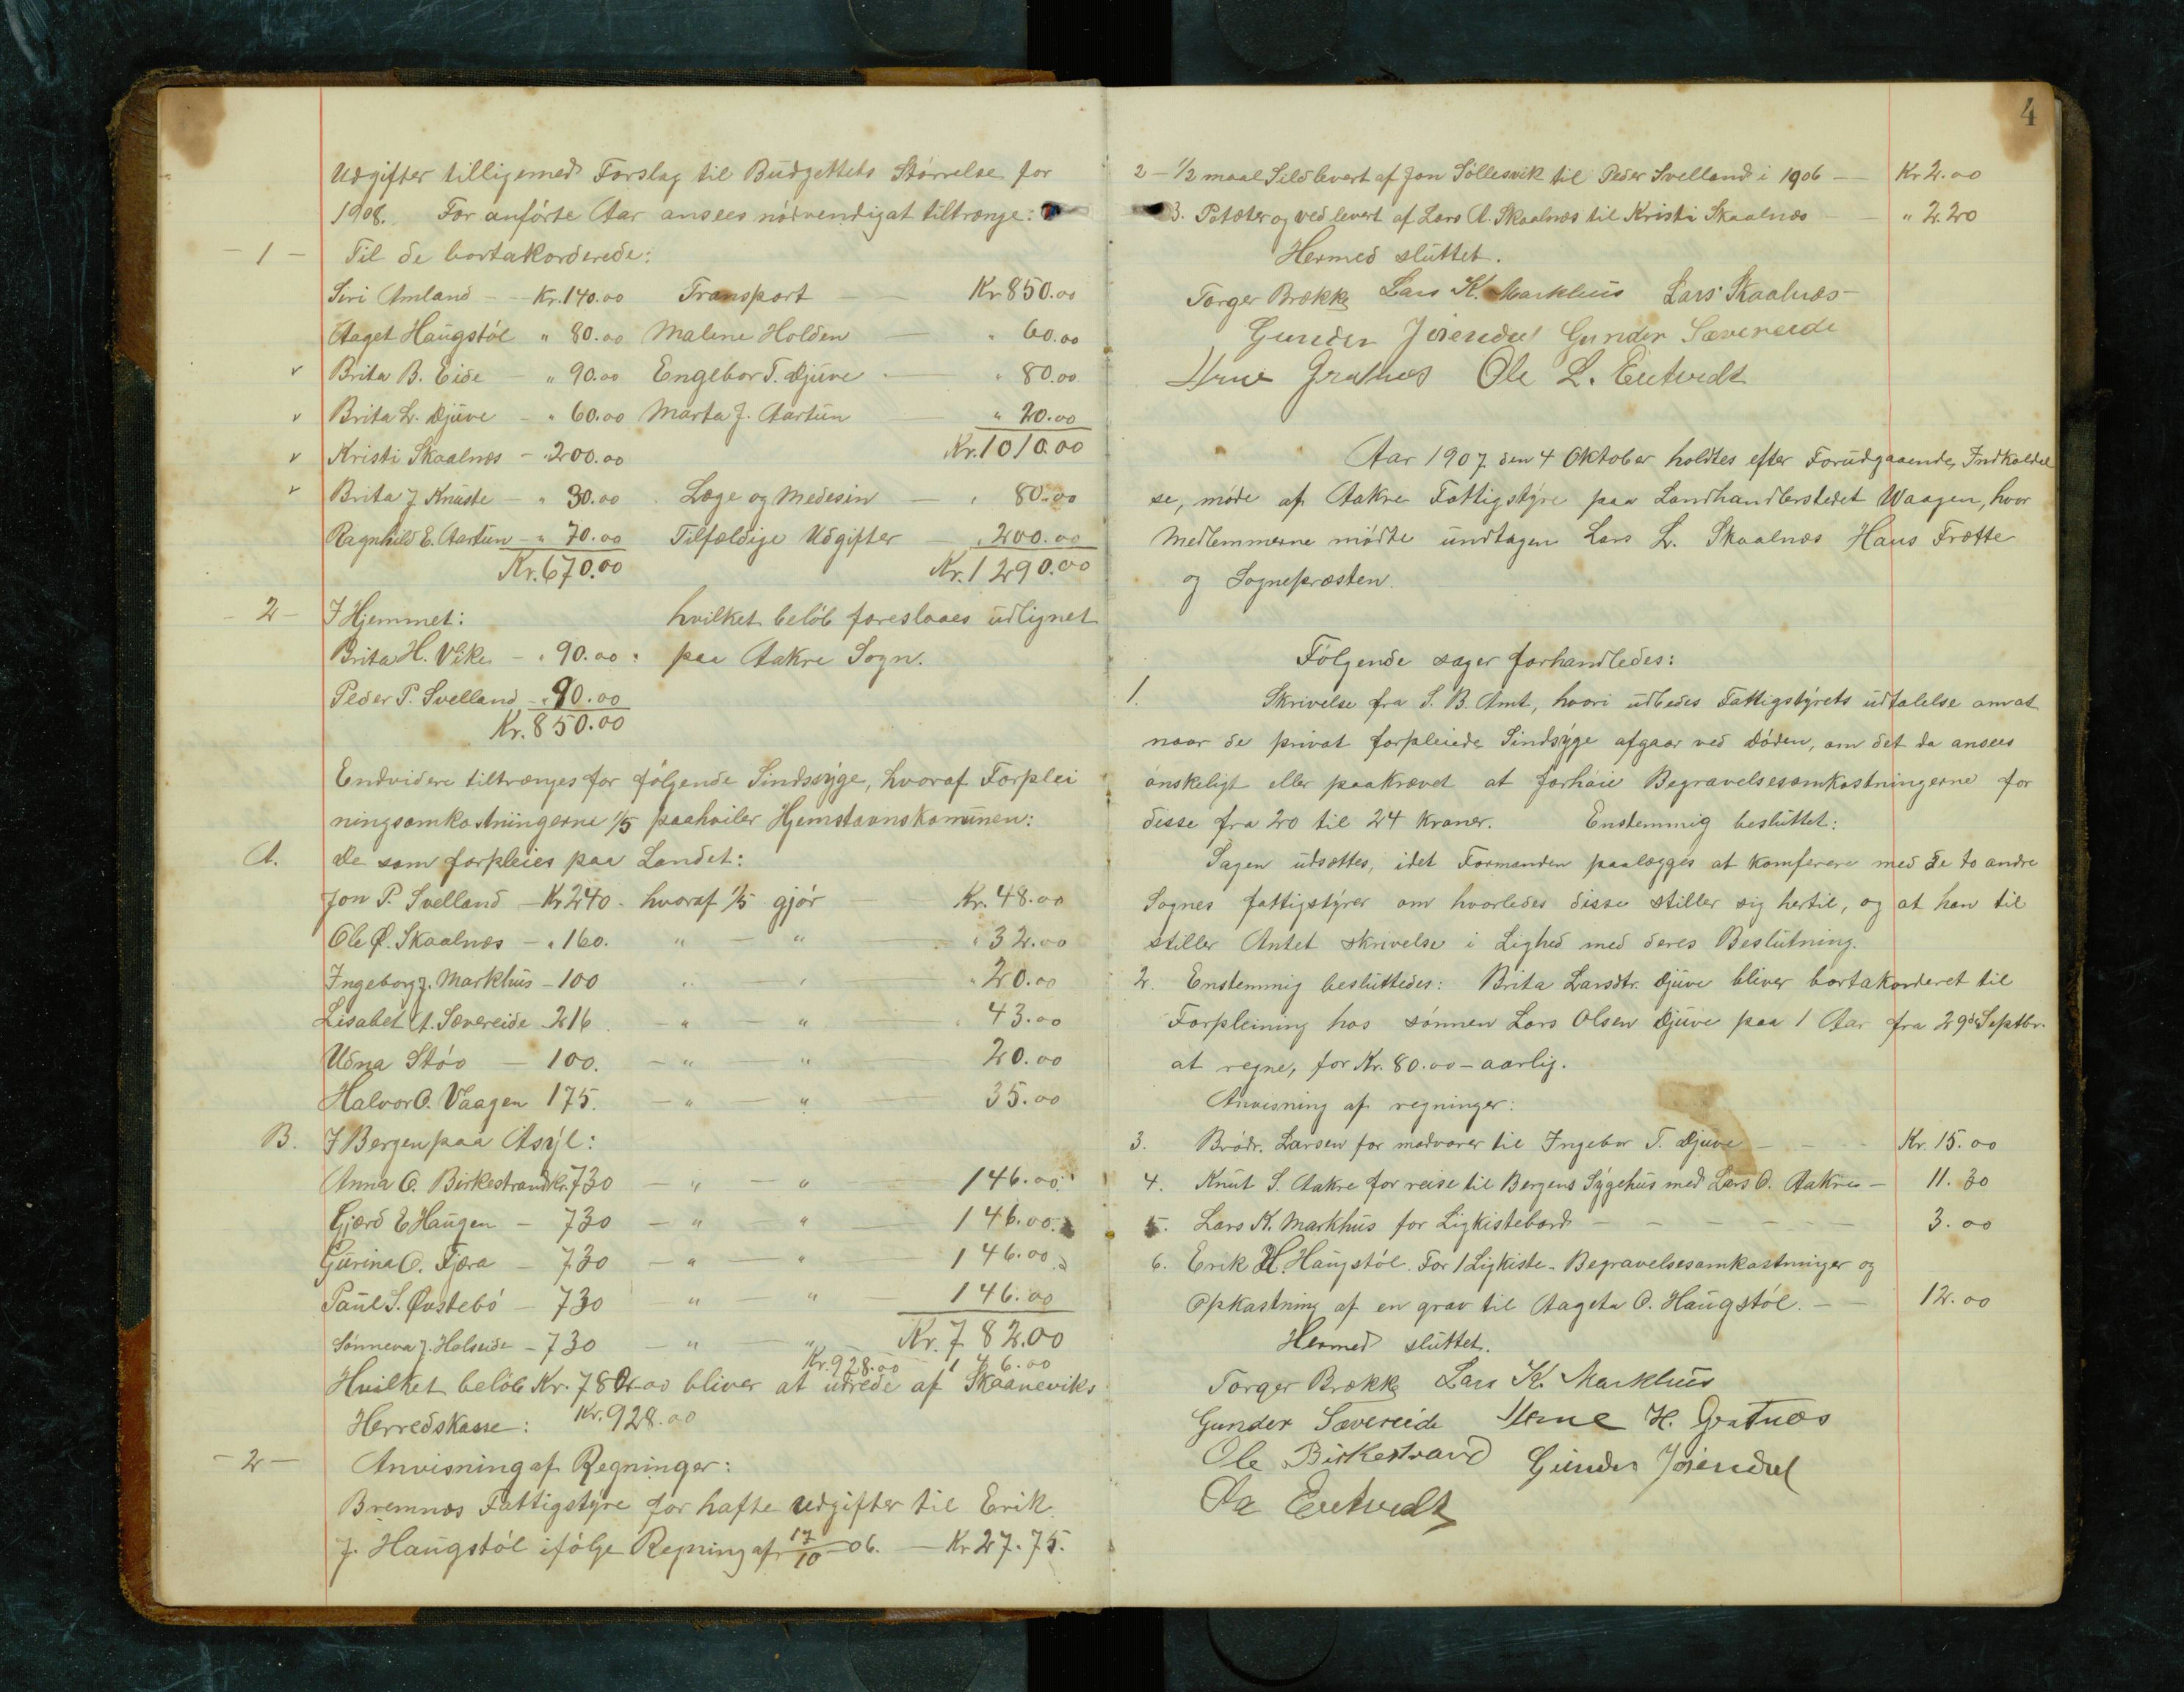 Udgifter tilligemed Forslag til Budgettets Störrelse for
1908. For anförte Aar ansees nödvendigat tiltrænge:
- 1 - Til de bortakorderede:
Siri Amland - - Kr. 140.00 Transport - Kr 850.00
Aaget Haugstöl " 80.00 Malene Holden - " 60.00
v Brita B. Eide - " 90.00 Engebor T. Djuve - " 80.00
v Brita L. Djuve - " 60.00 Marta J. Aartun - " 20.00
v Kristi Skaalnæs - " 200.00 Kr. 1010.00
v Brita J Knuste - " 30.00 Læge og Medesin - " 80.00
Ragnhild E. Aartun - " 70.00 Tilfældige Udgifter - " 200.00
Kr. 670.00 Kr. 1290.00
- 2 - I Hjemmet: hvilket belöb foreslaaes udlignet
Brita H. Vike - " 90.00 paa Aakre Sogn.
Peder P. Svelland - " 90.00
Kr. 850.00
Endvidere tiltrænges for fölgende Sindssyge, hvoraf Forplei
ningsomkostningerne 1/5 paahviler Hjemstavnskomunen:
A. De som forpleies paa Landet:
Jon P. Svelland - Kr 240 - hvoraf 1/5 gjör - Kr. 48.00
Ole Ø. Skaalnæs - " 160. " - " - " 32.00
Ingeborg J. Markhus - 100 " - " - " 20.00
Lisabet A. Sævereide 216 - " - " - " 43.00
Udna Stöo - 100. - " - " - 20.00
Halvor O. Vaagen 175. - " - " - 35.00
B. I Bergen paa Asyl:
Anna O. Birkestrand Kr. 730 - " - " - 146.00
Gjærd E Haugen - 730 - " - " - 146.00
Gurina O. Fjæra - 730 - " - " - 146.00
Paul S. Øvstebö - 730 - " - " - 146.00
Sönneva J. Halseide - 730 - " - " Kr. 782.00
Kr. 928.00 146.00
Hvilket belöb Kr. 782.00 bliver at udrede af Skaaneviks
Herredskasse: Kr. 928.00
- 2 - Anvisning af Regninger:
Bremnæs Fattigstyre for hafte udgifter til Erik
J. Haugstöl ifölge Regning af 17/10 - 06. - Kr 27.75.
4
2 - 1/2 maal Sild levert af Jon Söllesvik til Peder Svelland i 1906 - Kr 2.00
3. Potæter og ved levert af Lars A. Skaalnæs til Kristi Skaalnæs - " 2.20
Hermed sluttet.
Torger Brække Lars K. Markhus Lars Skaalnæs
Gunder Jøiendal Gunder Sævereide
Arne Gratnæs Ole L. Eietvedt
Aar 1907 den 4 Oktober holdtes efter Forudgaaende, Indkaldel
se, möde af Aakre Fattigstyre paa Landhandlerstedet Waagen, hvor
Medlemmerne mödte undtagen Lars L. Skaalnæs Hans Frætte
og Sognepræsten.
Fölgende sager forhandledes:
1. Skrivelse fra S. B. Amt, hvori udbedes Fattigstyrets udtalelse om at
naar de privat forpleiede Sindsyge afgaar ved Döden, om det da ansees
önskeligt eller paakrævet at forhöie Begravelsesomkostningerne for
disse fra 20 til 24 Kroner. Enstemmig besluttet:
Sagen udsættes, idet Formanden paalægges at konferere med de to andre
Sognes fattigstyrer om hvorledes disse stiller sig hertil, og at han til
stiller Amtet skrivelse i Lighed med deres Beslutning.
2. Enstemmig besluttedes: Brita Larsdtr. Djuve bliver bortakorderet til
Forpleining hos sönnen Lars Olsen Djuve paa 1 Aar fra 29de Septbr.
at regne, for Kr. 80.00 - aarlig.
Anvisning af regninger:
3. Brödr. Larsen for madvarer til Ingebor T. Djuve - - - Kr. 15.00
4. Knut S. Aakre for reise til Bergens Sygehus med Lars O. Aakre - 11.30
5. Lars K. Markhus for Ligkistebord - - - - - 3.00
6. Erik H. Haugstöl. For 1 Ligkiste - Begravelsesomkostninger og
Opkastning af en grav til Aageta O. Haugstöl. - - 12.00
Hermed sluttet.
Torger Brække Lars K. Markhus
Gunder Sævereide Arne H. Gratnæs
Ole Birkestrand Gunder Jøiendal
Ola Eietvedt